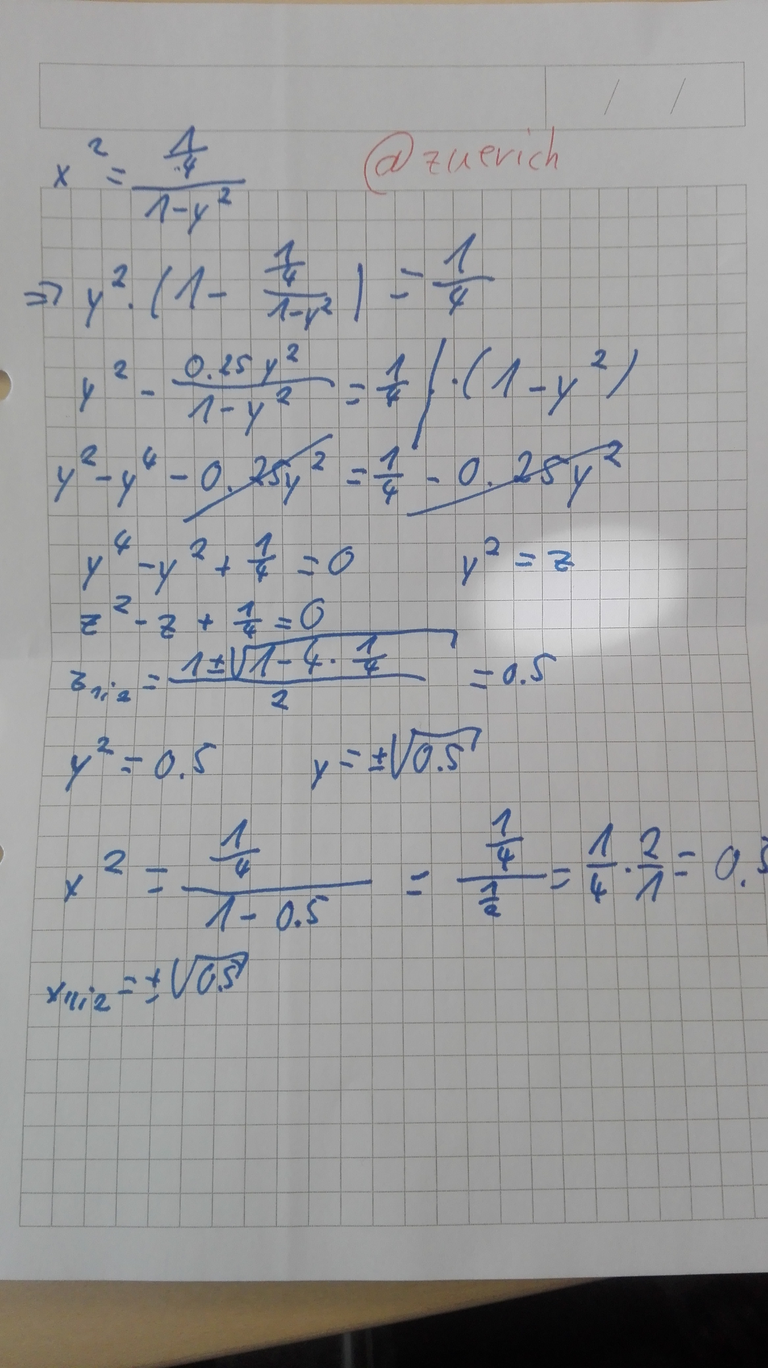 / /
@zuerich
x² = (1/4)/(1-y²)
=> y² · (1 - (1/4)/(1-y²)) = 1/4
y² - (0.25y²)/(1-y²) = 1/4 | · (1-y²)
y² - y⁴ - 0.25y² = 1/4 - 0.25y²
y⁴ - y² + 1/4 = 0 y² = z
z² - z + 1/4 = 0
z₁,₂ = (1±√(1-4·1/4))/2 = 0.5
y² = 0.5 y = ±√(0.5)
x² = (1/4)/(1-0.5) = (1/4)/(1/2) = 1/4 · 2/1 = 0.5
x₁,₂ = ±√(0.5)